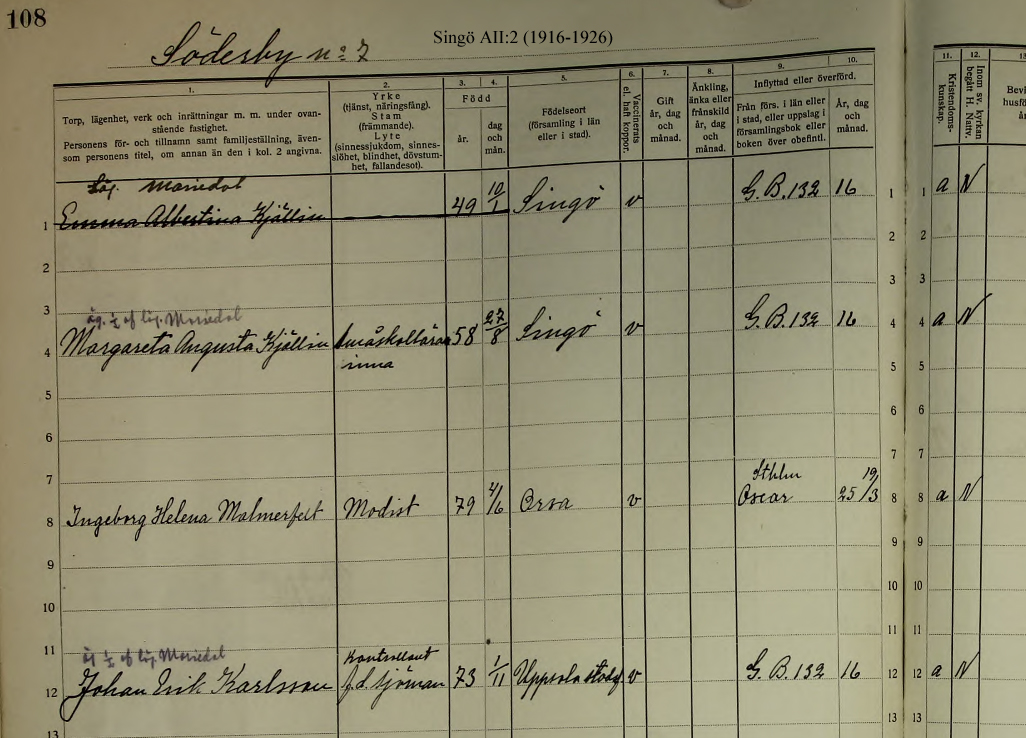 108
Singö AII:2 (1916-1926)
Söderby nº 7
1.
Torp, lägenhet, verk och inrättningar m. m. under ovan-
stående fastighet.
Personens för- och tillnamn samt familjeställning, även-
som personens titel, om annan än den i kol. 2 angivna.
2.
Yrke
(tjänst, näringsfång).
Stam
(främmande).
Lyte
(sinnessjukdom, sinnes-
slöhet, blindhet, dövstum-
het, fallandesot).
3. 4.
Född
år.
dag
och
mån.
5.
Födelseort
(församling i län
eller i stad).
6.
Vaccinerats
el. haft koppor.
7.
Gift
år, dag
och
månad.
8.
Änkling,
änka eller
frånskild
år, dag
och
månad.
9. 10.
Inflyttad eller överförd.
Från förs. i län eller
i stad, eller uppslag i
församlingsbok eller
boken över obefintl.
År, dag
och
månad.
11.
Kristendoms-
kunskap.
12.
Inom sv. kyrkan
begått H. Nattv.
13
Bevi
husfö
år
Läg. Mariedal
1 Emma Albertina Kjällin 49 10/1 Singö v G.B.132 16 1 1 a N
2 2 2
3 3 3
äg. ½ af läg. Mariedal
4 Margareta Augusta Kjällin Småskollärar 58 27/8 Singö v G.B.132 16 4 4 a N
inna
5 5 5
6 6 6
7 7 7
Sthlm 19/3
8 Ingeborg Helena Malmerfelt Modist 79 4/6 Orsa v Oscar 25 8 8 a N
9 9 9
10 10 10
11 11 11
äg ½ af läg. Mariedal Kontrollant
12 Johan Erik Karlsson f.d. sjöman 73 1/11 Uppsala v G.B.132 16 12 12 a N
13 13 13